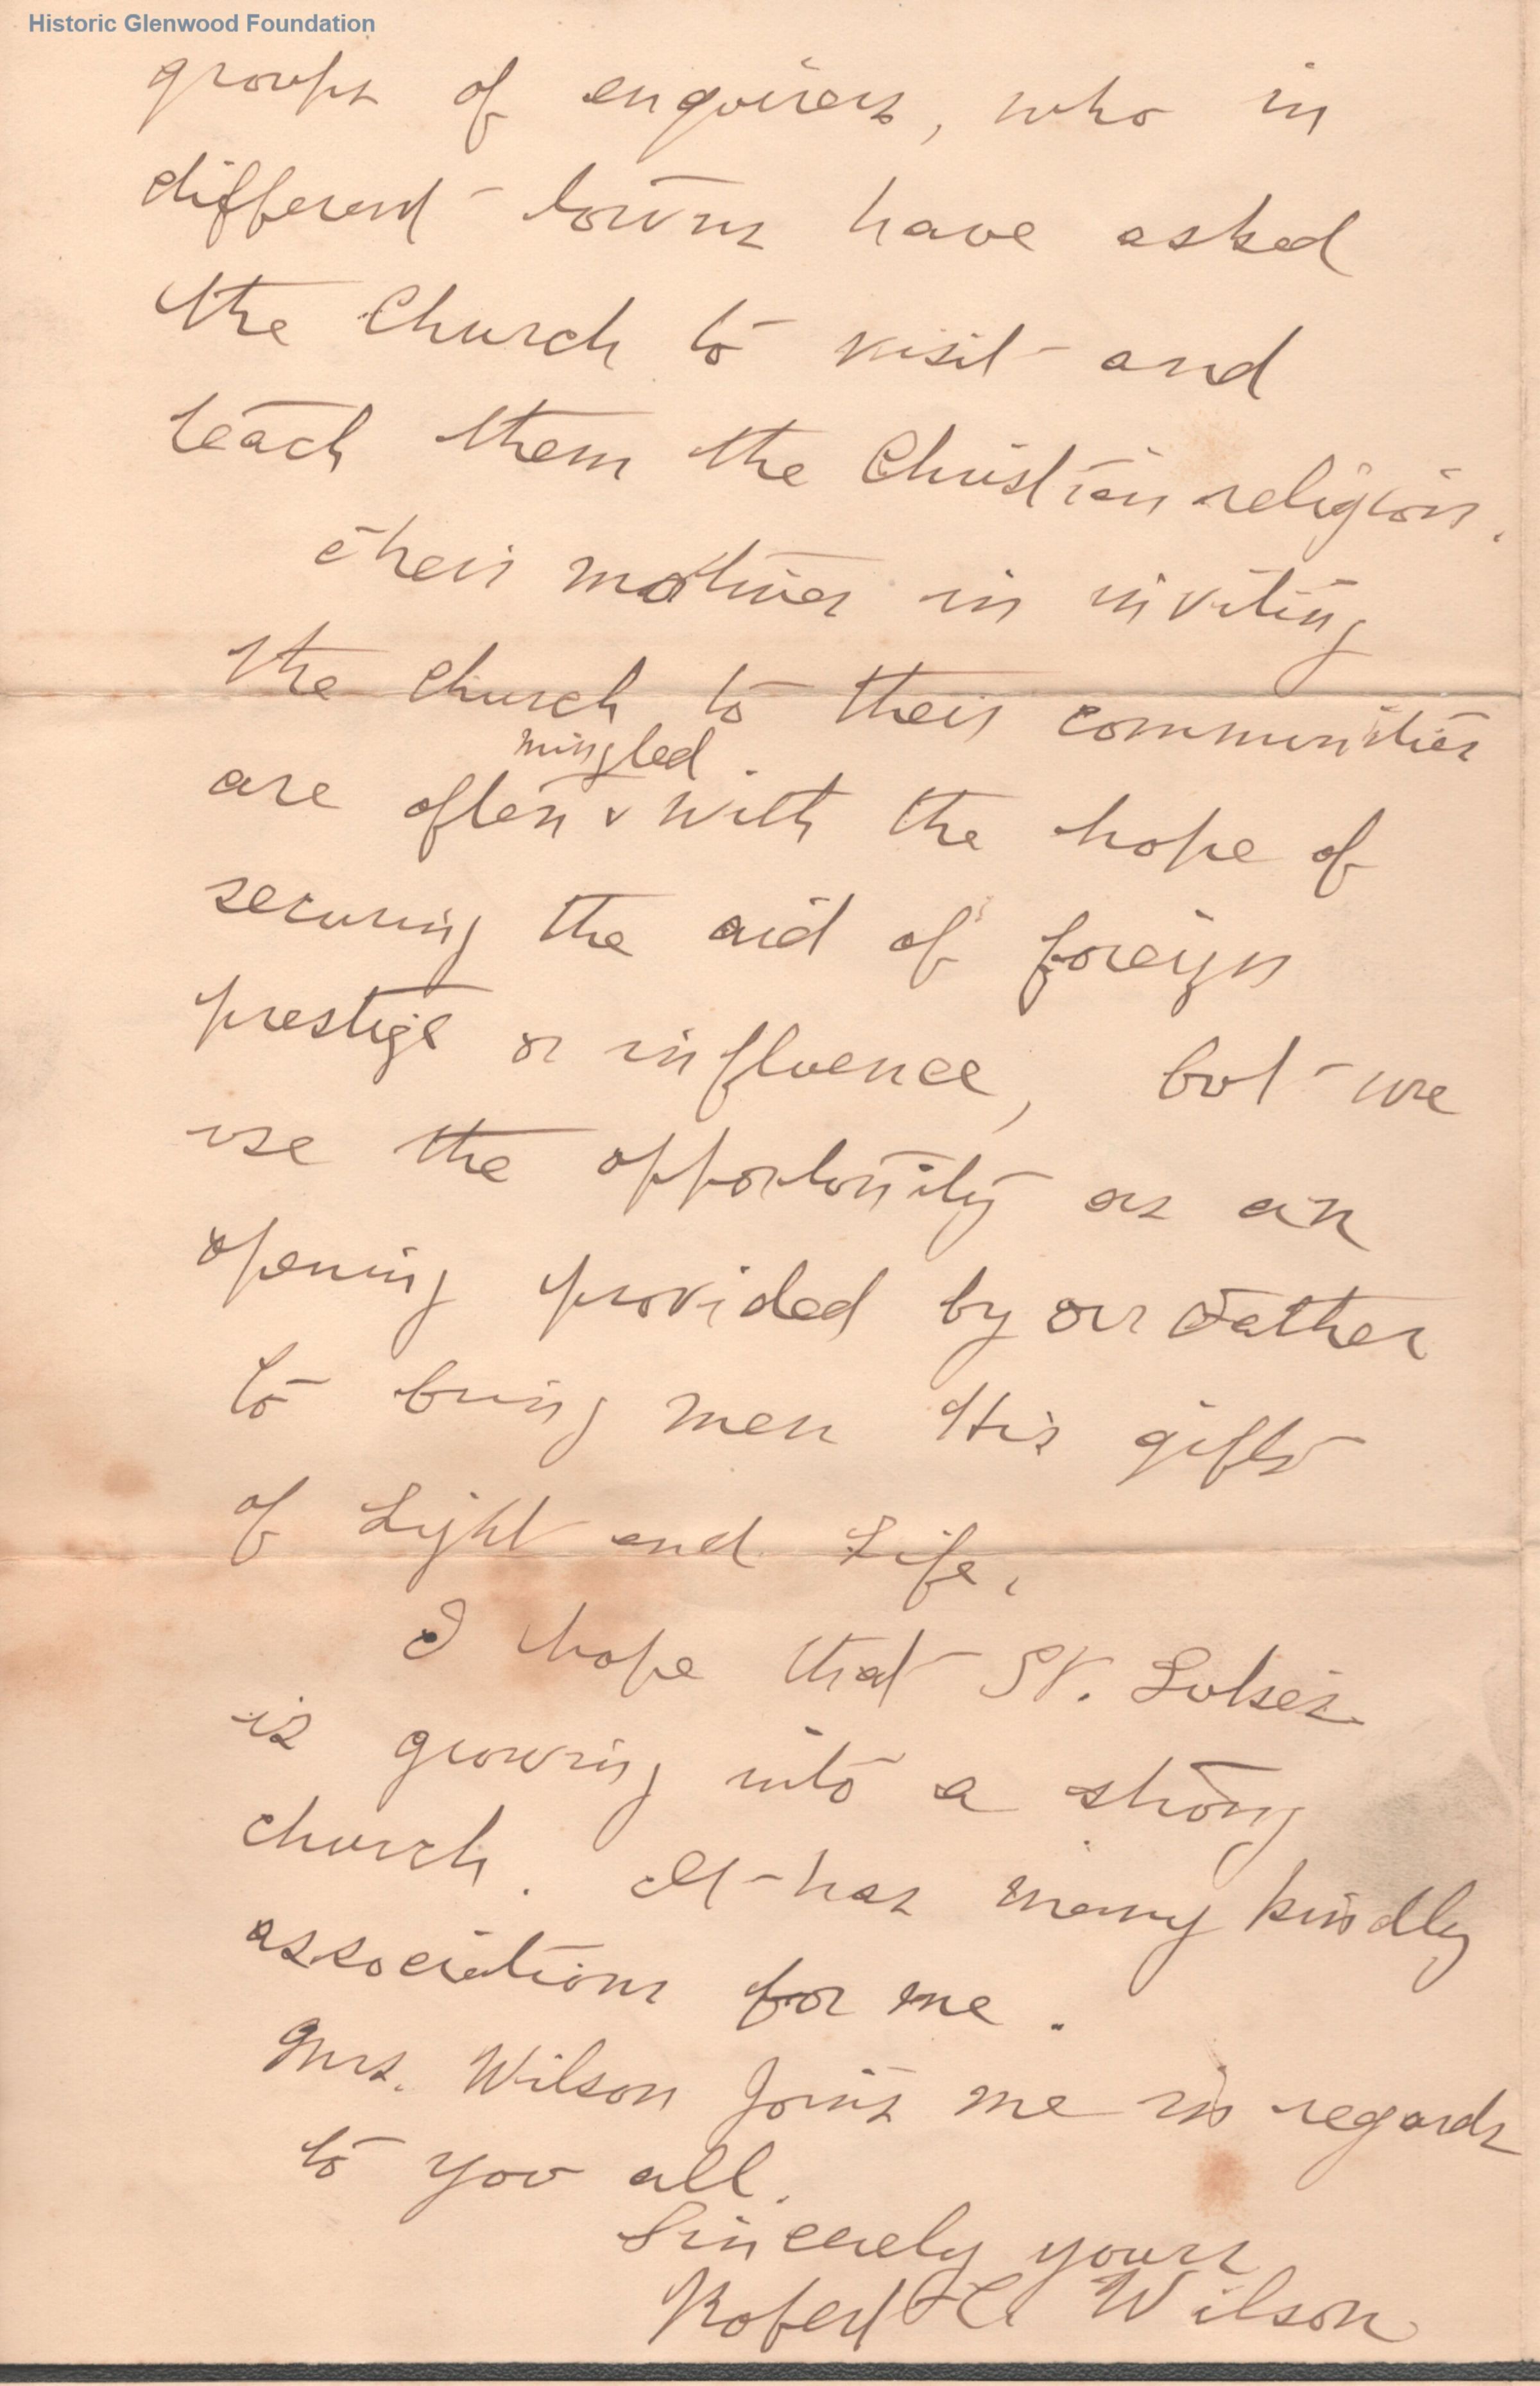 Historic Glenwood Foundation
groups of enquirers, who in
different towns have asked
the Church to visit and
teach them the Christian religion.
Their motives in inviting
the church to their communities
mingled
are often v with the hope of
securing the aid of foreign
prestige or influence, but we
use the opportunity as an
opening provided by our Father
to bring men His gifts
of Light and Life.
I hope that St. Lukes
is growing into a strong
church. It has many kindly
associations for me.
Mrs. Wilson joins me in regards
to you all.
Sincerely yours
Robert C. Wilson